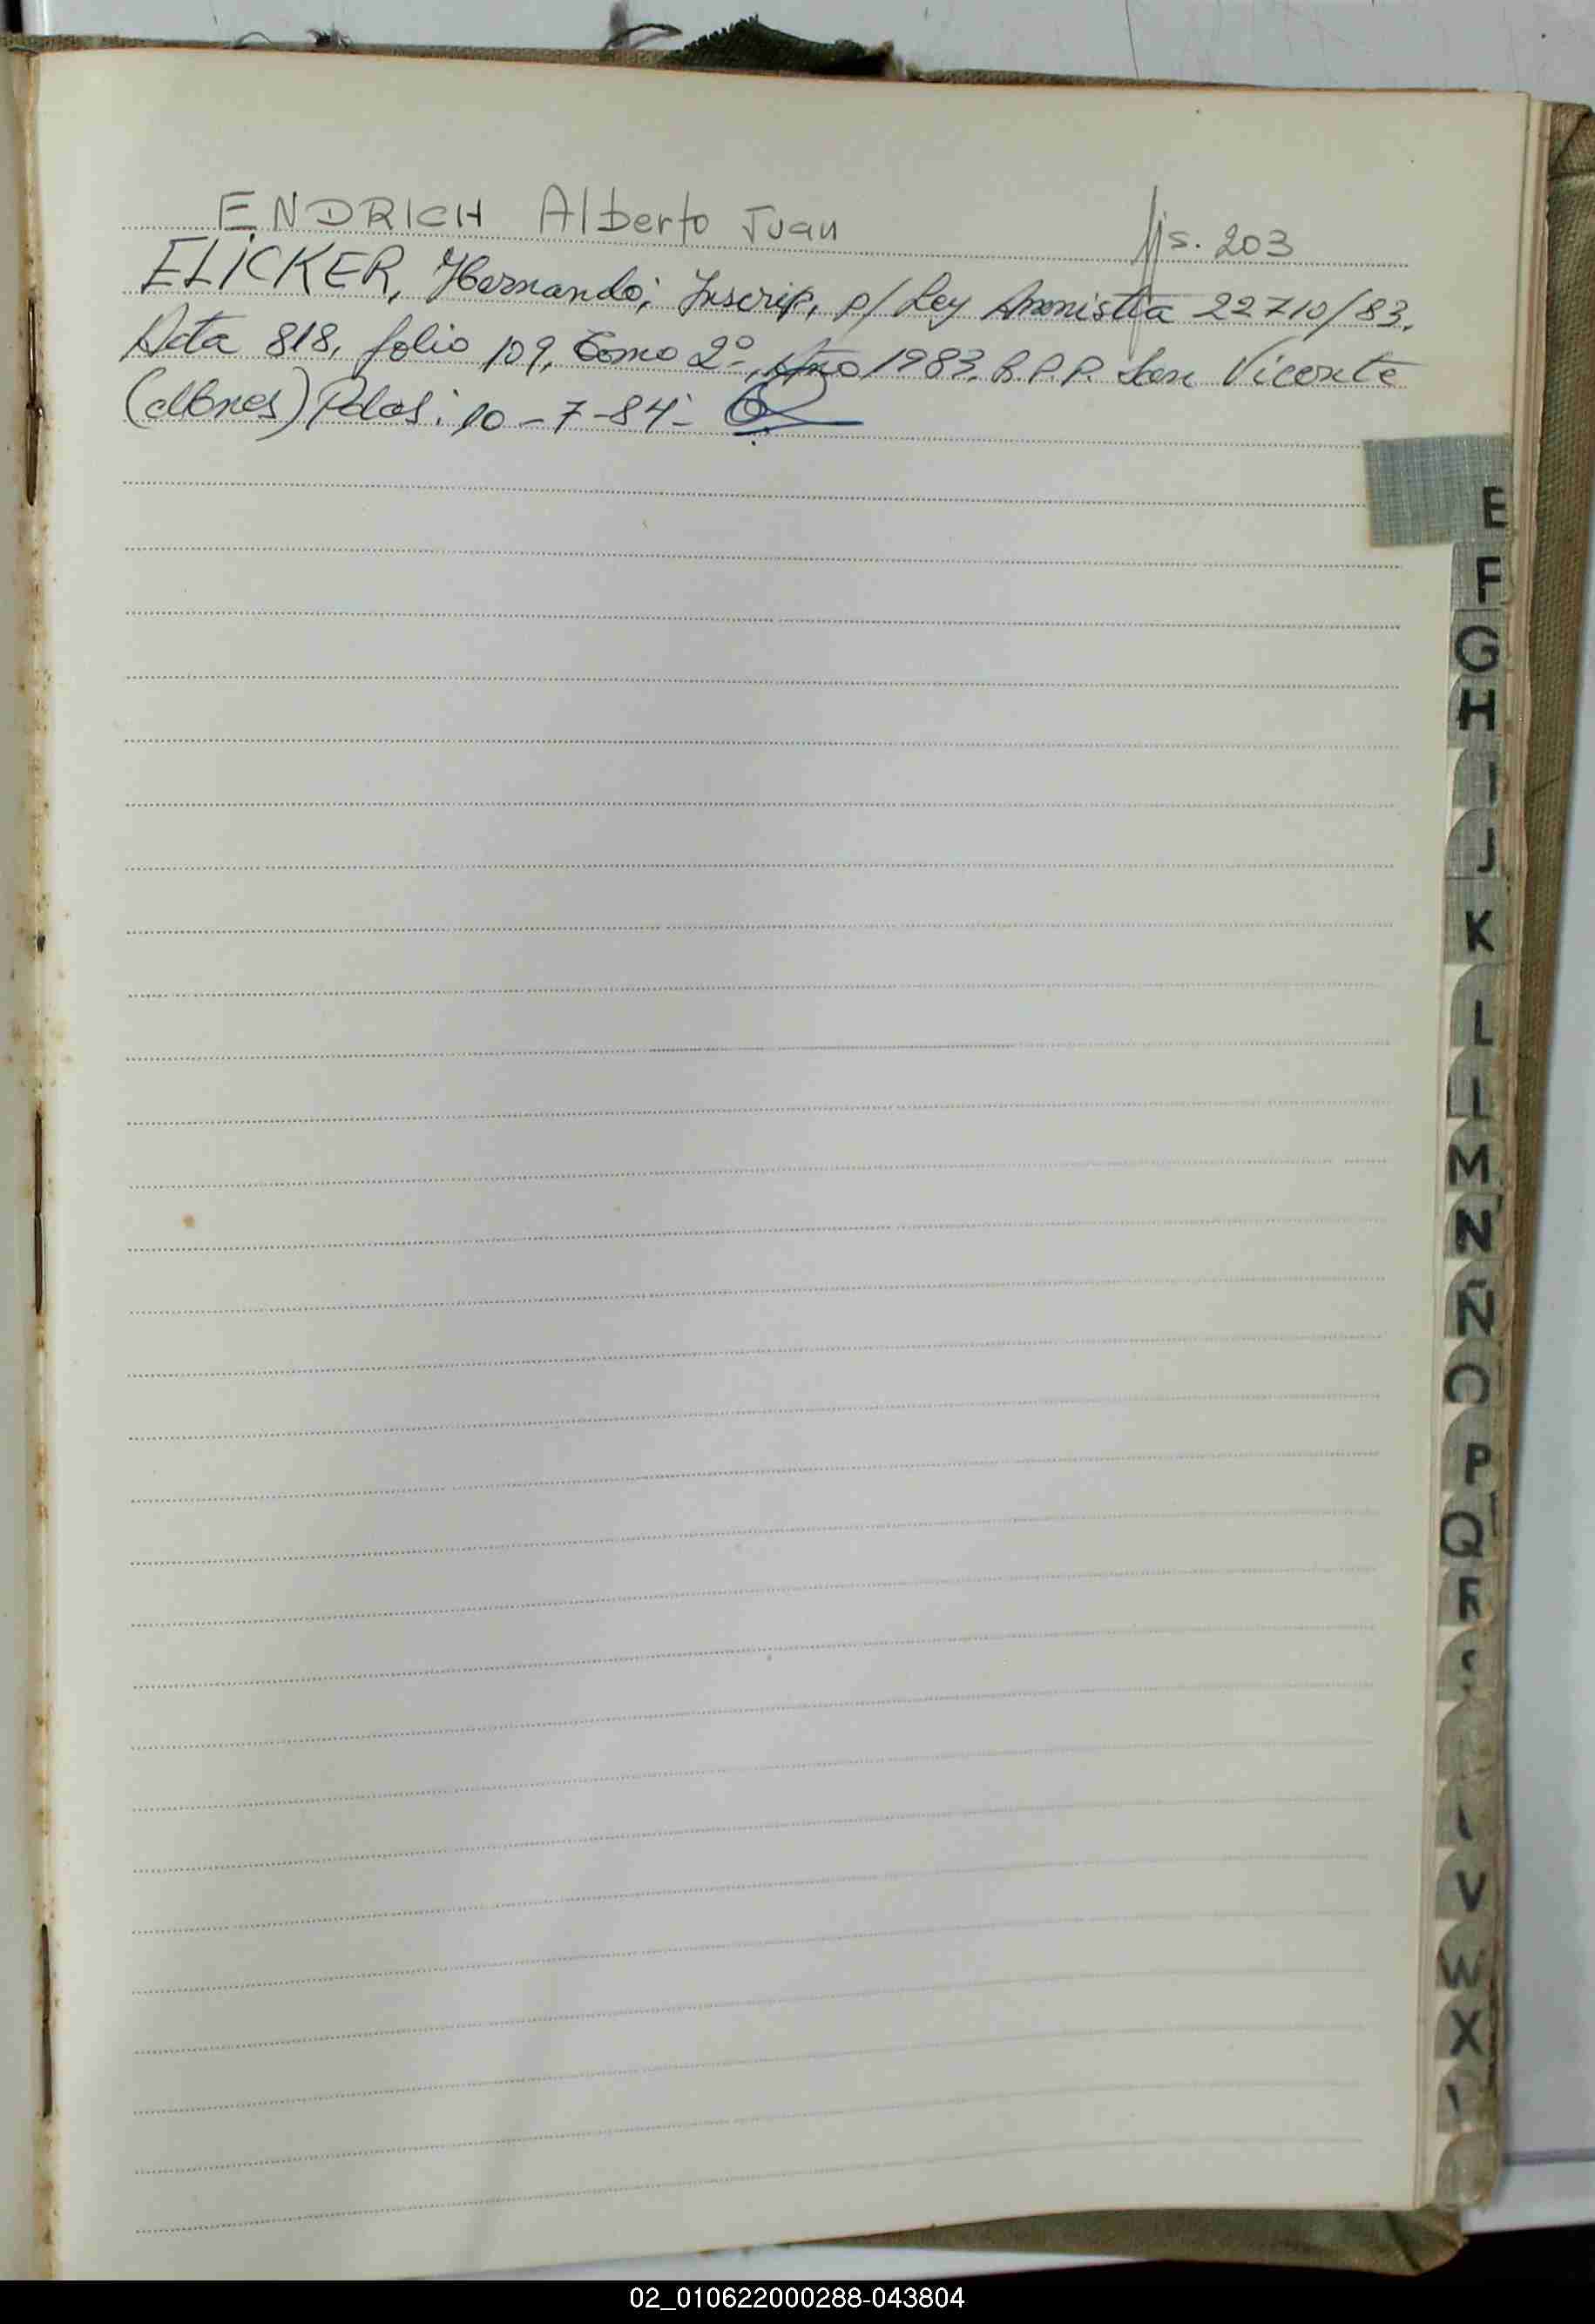 ENDRICH Alberto Juan fjs. 203
ELICKER, Hernando; Inscrip. p/ Ley Amnistia 22710/83.
Acta 818, folio 109, Tomo 2º, Año 1983. R.P.P. San Vicente
(Mnes) Pdas: 10-7-84-
E
F
G
H
I
J
K
L
M
N
Ñ
O
P
Q
R
V
W
X
02_010622000288-043804